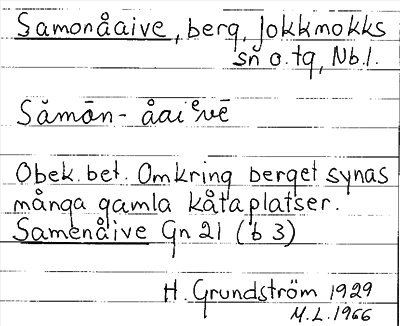 Samonåaive, berg, Jokkmokks
sn o. tg, Nb.l.
Sămōn- åaiᵉvē
Obek. bet. Omkring berget synas
många gamla kåtaplatser.
Samenåive Gn 21 (b 3)
H Grundström 1929
M.L. 1966